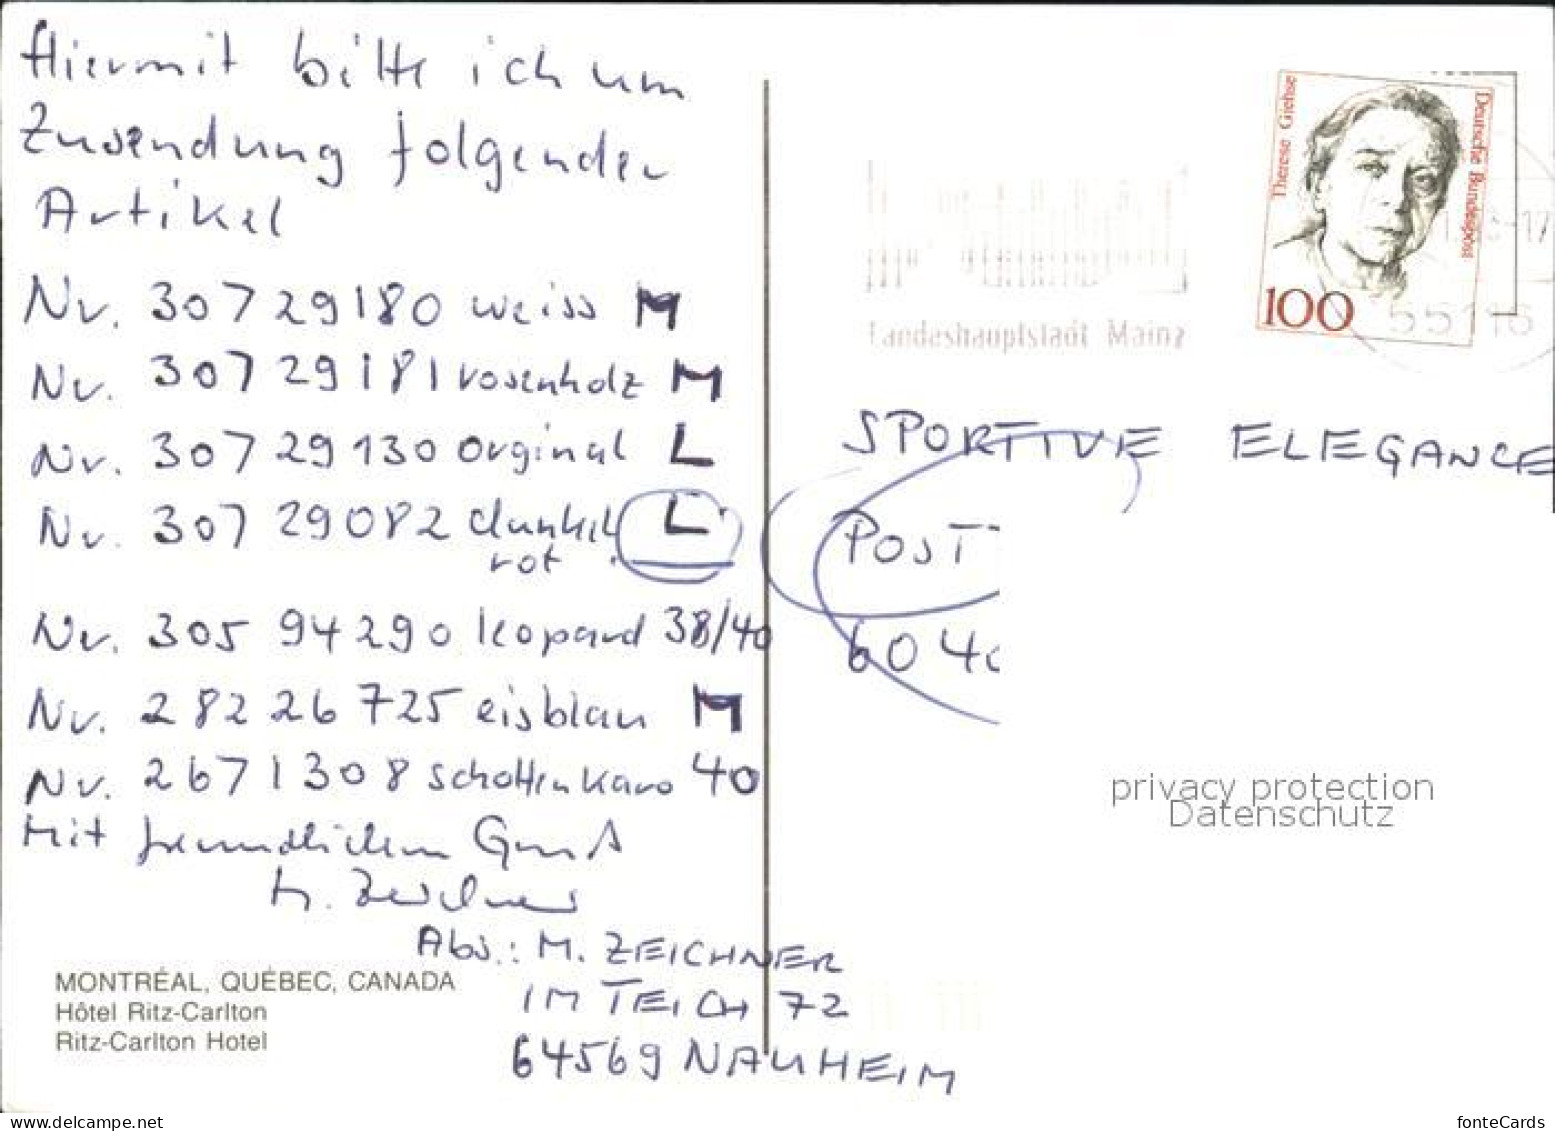 Hiermit bitte ich um
Zusendung folgender
Artikel
Nr. 307 29180 weiss M
Nr. 307 29181 rosenholz M
Nr. 307 29130 Orginal L
Nr. 307 29082 dunkel L
rot
Nr. 305 94290 leopard 38/40
Nr. 282 26725 eisblau M
Nr. 2671308 Schottenkaro 40
Mit freundlichem Gruß
M. Zeichner
Abs.: M. ZEICHNER
IM TEICH 72
64569 NAUHEIM
MONTRÉAL, QUÉBEC, CANADA
Hôtel Ritz-Carlton
Ritz-Carlton Hotel
Landeshauptstadt Mainz
Therese Giehse
Deutsche Bundespost
100
-17
55116
SPORTIVE ELEGANCE
POST
604
privacy protection
Datenschutz
delcampe.net
fonteCards